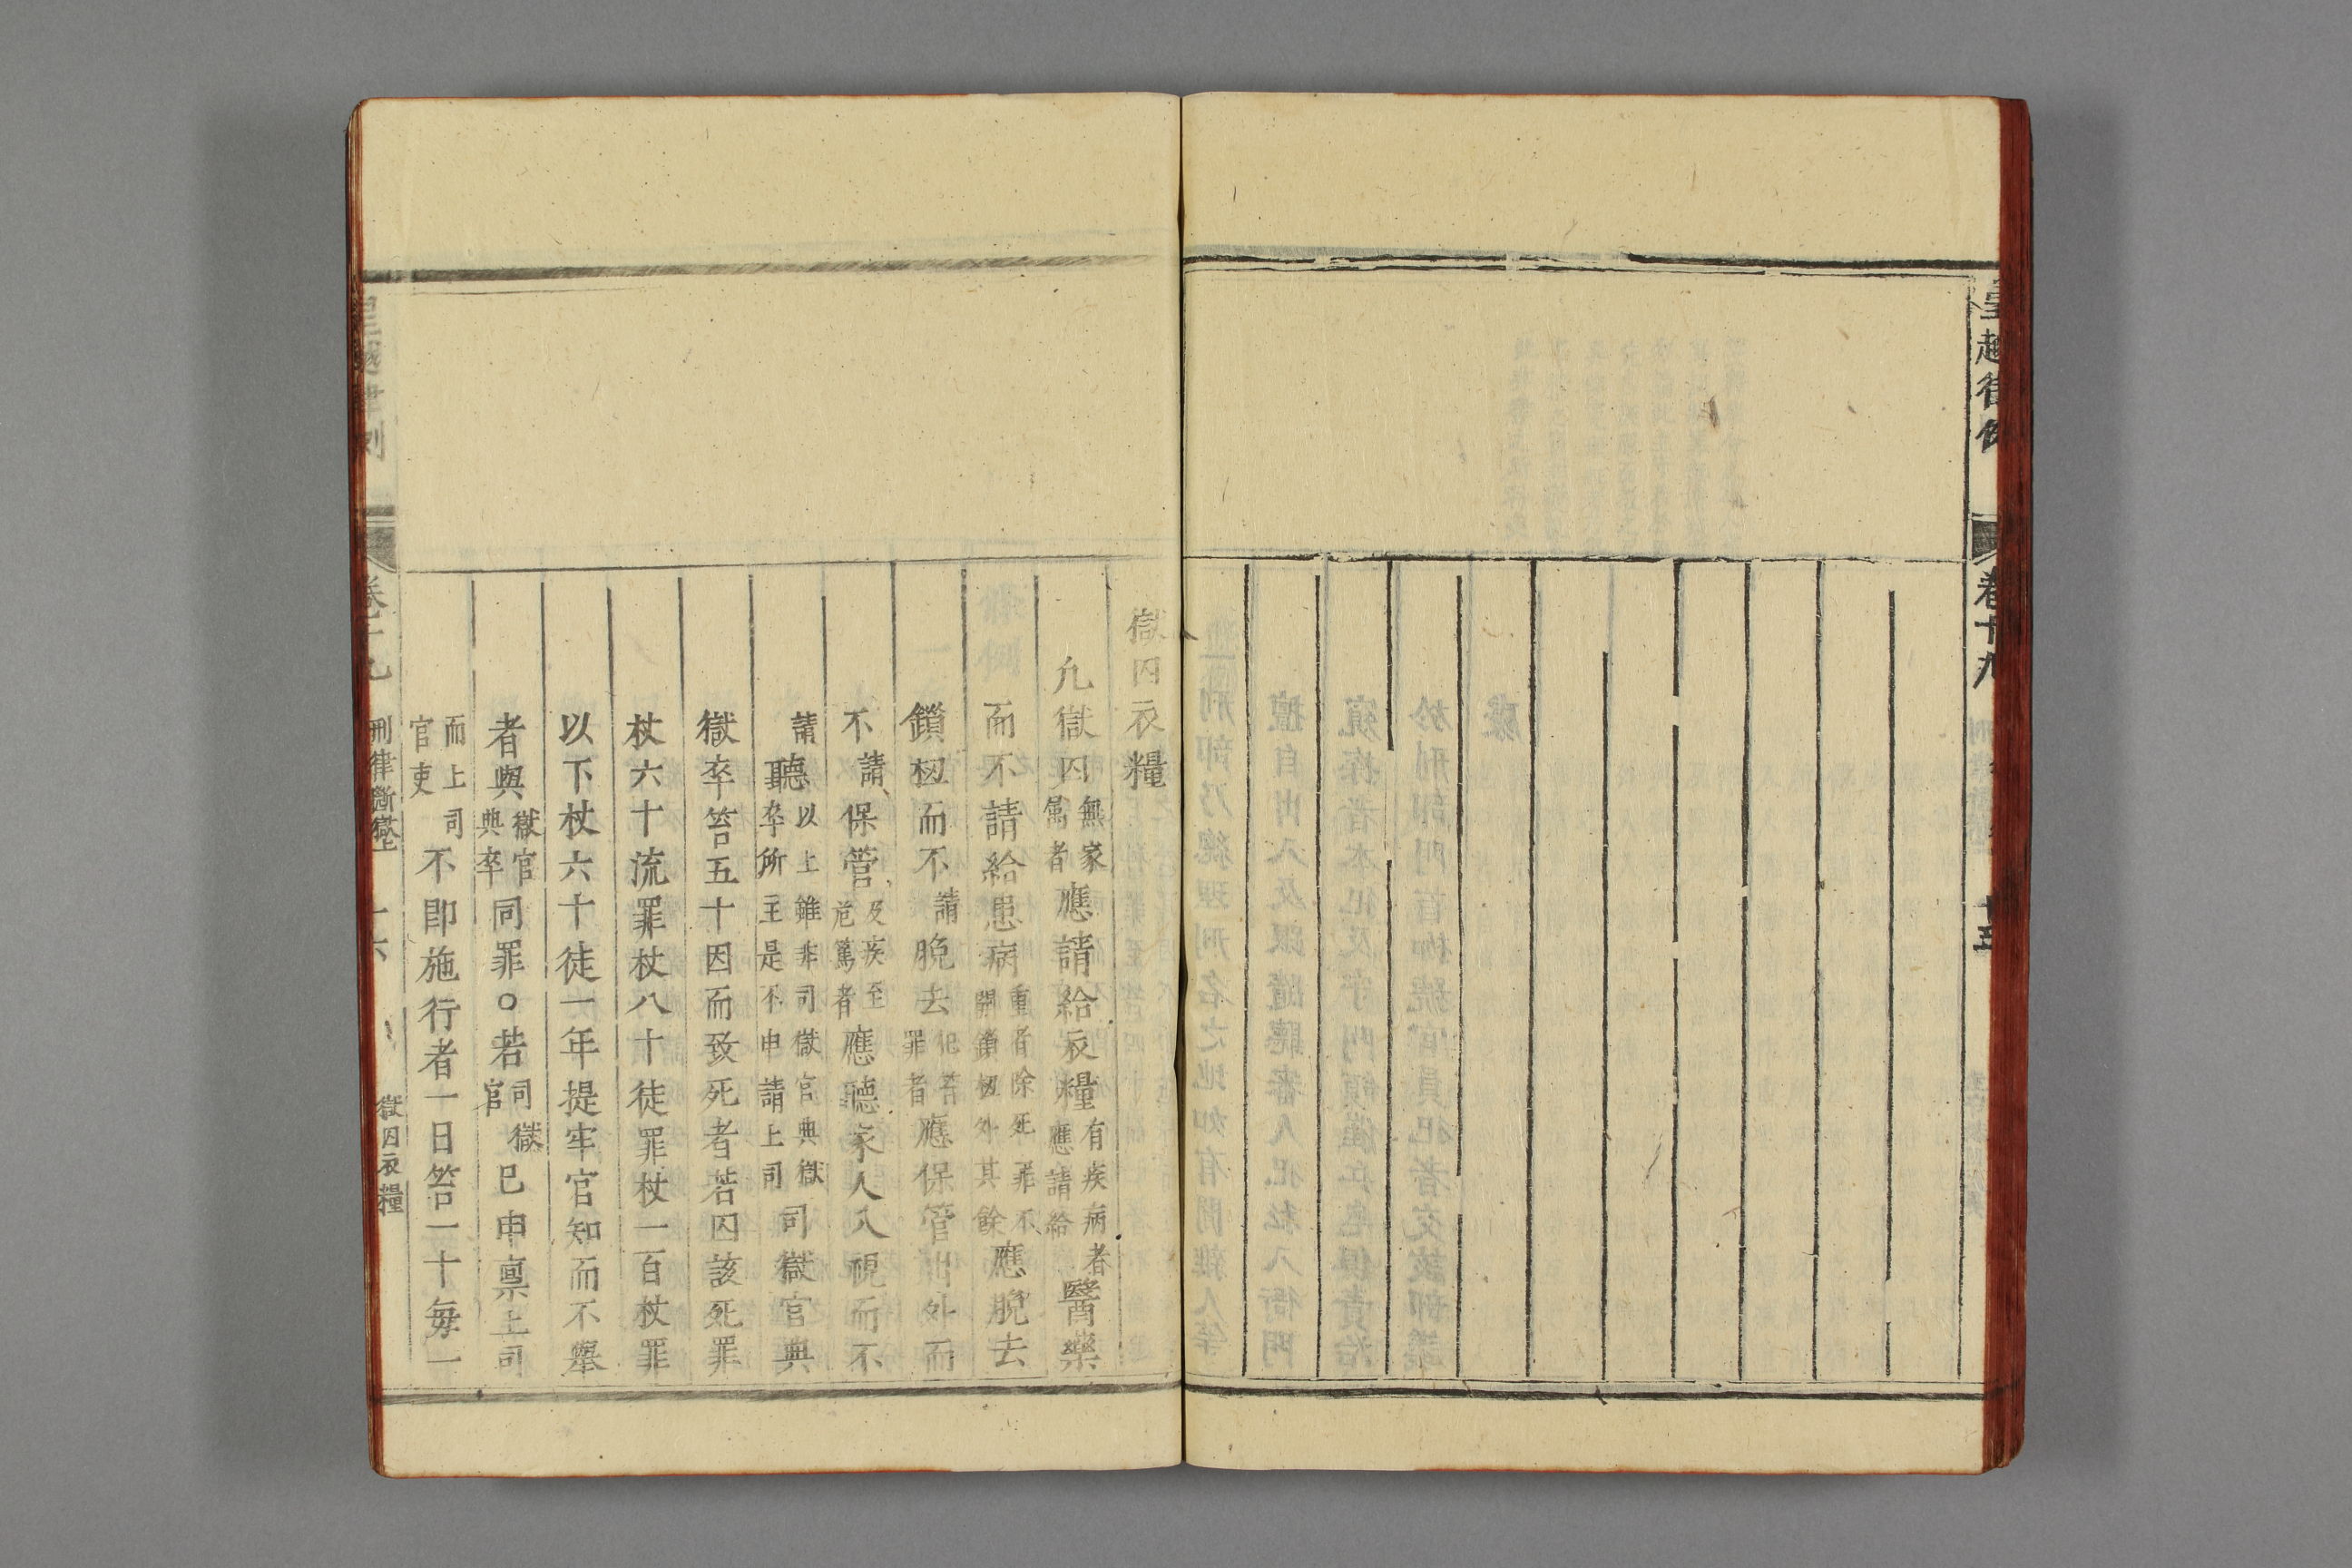 皇越律例 卷十九
獄囚衣糧
凡獄囚無家屬者應請給衣糧有疾病者應請給醫藥
而不請給患病重者除死罪不開鎖杻外其餘應脫去
鎖杻而不請脫去犯笞罪者應保管出外而
不請保管及疾至危篤者應聽家人入視而不
請聽以上雖非司獄官典獄卒所主是不申請上司司獄官典
獄卒笞五十因而致死者若囚該死罪
杖六十流罪杖八十徒罪杖一百杖罪
以下杖六十徒一年提牢官知而不舉
者與獄官典卒同罪○若司獄官已申禀上司
而上司官吏不即施行者一日笞一十每一
皇越律例 卷十九 刑律斷獄上 十六 獄囚衣糧